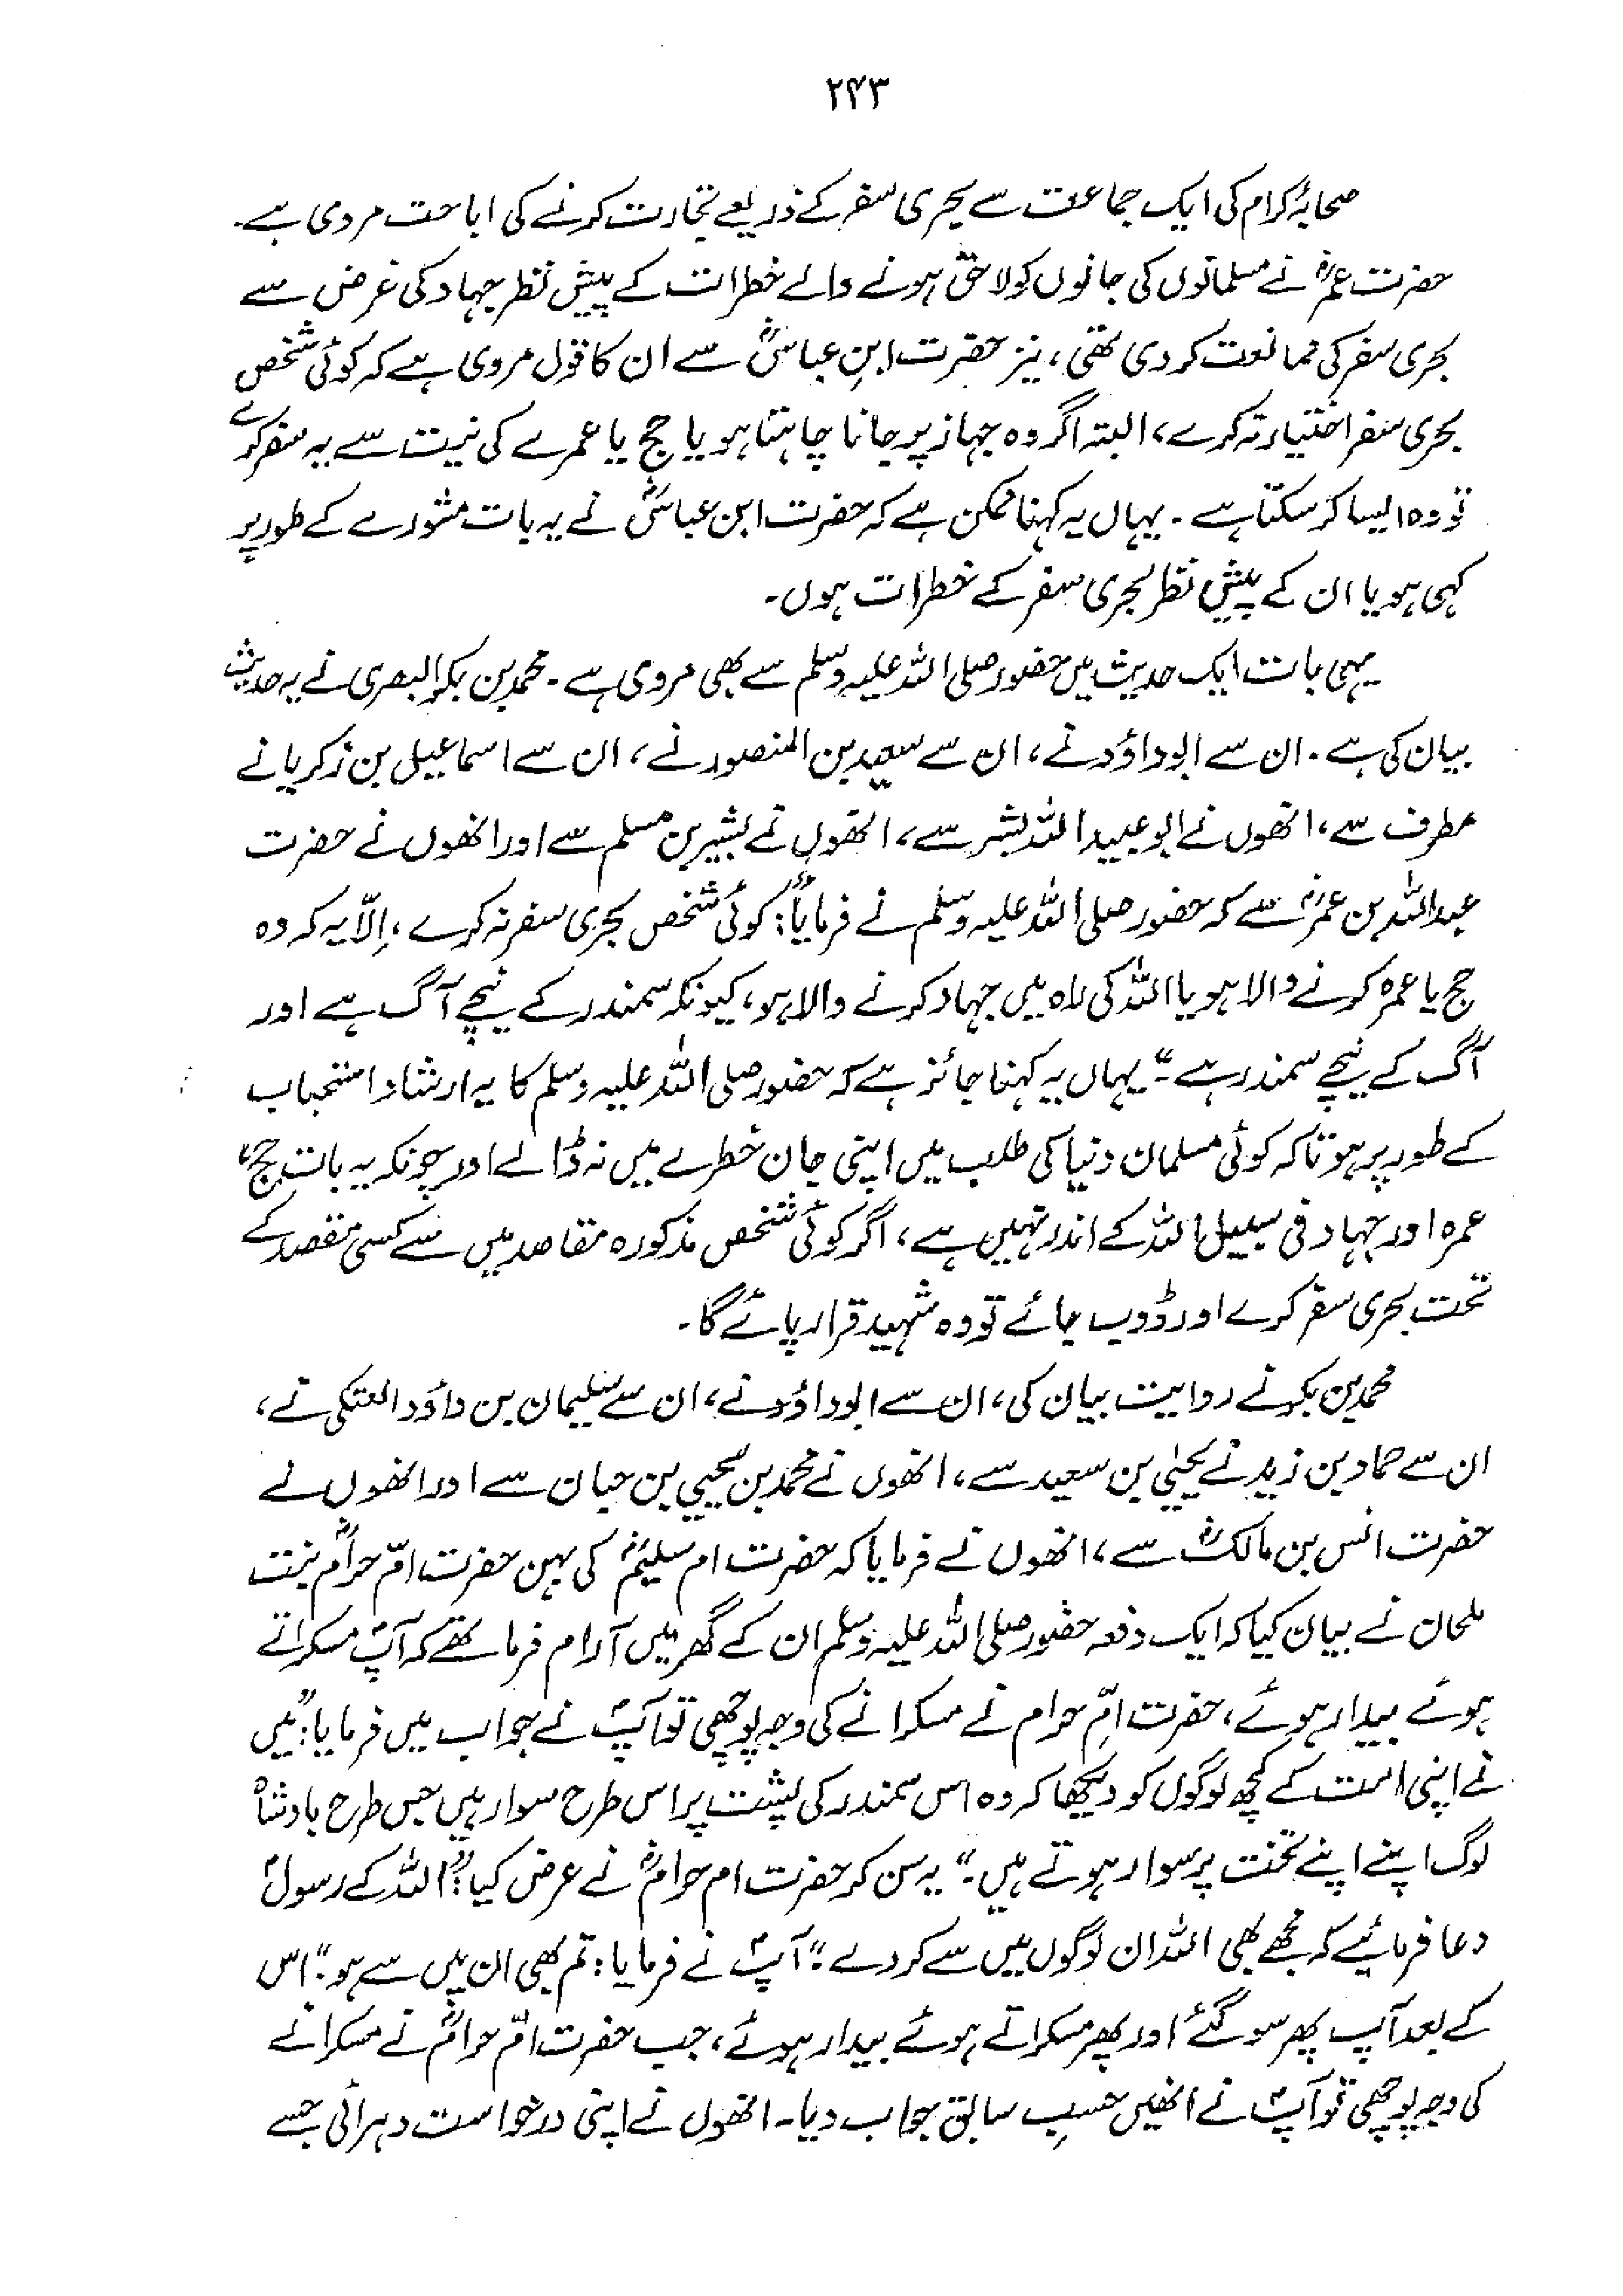 ۲۴۳
صحابۂ کرام کی ایک جماعت سے بحری سفر کے ذریعے تجارت کرنے کی اباحت مروی ہے۔
حضرت عمرؓ نے مسلمانوں کی جانوں کو لاحق ہونے والے خطرات کے پیش نظر جہاد کی غرض سے
بحری سفر کی ممانعت کر دی تھی، نیز حضرت ابنِ عباسؓ سے ان کا قول مروی ہے کہ کوئی شخص
بحری سفر اختیار نہ کرے، البتہ اگر وہ جہاز پر جانا چاہتا ہو یا حج یا عمرے کی نیت سے یہ سفر کرے
تو وہ ایسا کر سکتا ہے۔ یہاں یہ کہنا ممکن ہے کہ حضرت ابن عباسؓ نے یہ بات مشورے کے طور پر
کہی ہو یا ان کے پیش نظر بحری سفر کے خطرات ہوں۔
یہی بات ایک حدیث میں حضور صلی اللہ علیہ وسلم سے بھی مروی ہے۔ محمد بن بکر البصری نے یہ حدیث
بیان کی ہے۔ ان سے ابو داؤد نے، ان سے سعید بن المنصور نے، ان سے اسماعیل بن زکریا نے
مطرف سے، انھوں نے ابو عبید اللہ بشر سے، انھوں نے بشیر بن مسلم سے اور انھوں نے حضرت
عبد اللہ بن عمرؓ سے کہ حضور صلی اللہ علیہ وسلم نے فرمایا: "کوئی شخص بحری سفر نہ کرے، اِلّا یہ کہ وہ
حج یا عمرہ کرنے والا ہو یا اللہ کی راہ میں جہاد کرنے والا ہو، کیونکہ سمندر کے نیچے آگ ہے اور
آگ کے نیچے سمندر ہے۔" یہاں یہ کہنا جائز ہے کہ حضور صلی اللہ علیہ وسلم کا یہ ارشاد استحباب
کے طور پر ہو تاکہ کوئی مسلمان دنیا کی طلب میں اپنی جان خطرے میں نہ ڈالے اور چونکہ یہ بات حج،
عمرہ اور جہاد فی سبیل اللہ کے اندر نہیں ہے، اگر کوئی شخص مذکورہ مقاصد میں سے کسی مقصد کے
تحت بحری سفر کرے اور ڈوب جائے تو وہ شہید قرار پائے گا۔
محمد بن بکر نے روایت بیان کی، ان سے ابو داؤد نے، ان سے سلیمان بن داؤد العتکی نے،
ان سے حماد بن زید نے یحیٰی بن سعید سے، انھوں نے محمد بن یحیی بن حبان سے اور انھوں نے
حضرت انس بن مالکؓ سے، انھوں نے فرمایا کہ حضرت ام سلیمؓ کی بہن حضرت امّ حرامؓ بنت
ملحان نے بیان کیا کہ ایک دفعہ حضور صلی اللہ علیہ وسلم ان کے گھر میں آرام فرما تھے کہ آپؐ مسکراتے
ہوئے بیدار ہوئے، حضرت امِّ حرام نے مسکرانے کی وجہ پوچھی تو آپؐ نے جواب میں فرمایا: "میں
نے اپنی امت کے کچھ لوگوں کو دیکھا کہ وہ اس سمندر کی پشت پر اس طرح سوار ہیں جس طرح بادشاہ
لوگ اپنے اپنے تخت پر سوار ہوتے ہیں۔" یہ سن کر حضرت ام حرامؓ نے عرض کیا: "اللہ کے رسولؐ
دعا فرمائیے کہ مجھے بھی اللہ ان لوگوں میں سے کر دے۔" آپؐ نے فرمایا: تم بھی ان میں سے ہو۔" اس
کے بعد آپ پھر سو گئے اور پھر مسکراتے ہوئے بیدار ہوئے، جب حضرت امّ حرامؓ نے مسکرانے
کی وجہ پوچھی تو آپؐ نے انھیں حسبِ سابق جواب دیا۔ انھوں نے اپنی درخواست دہرائی جسے